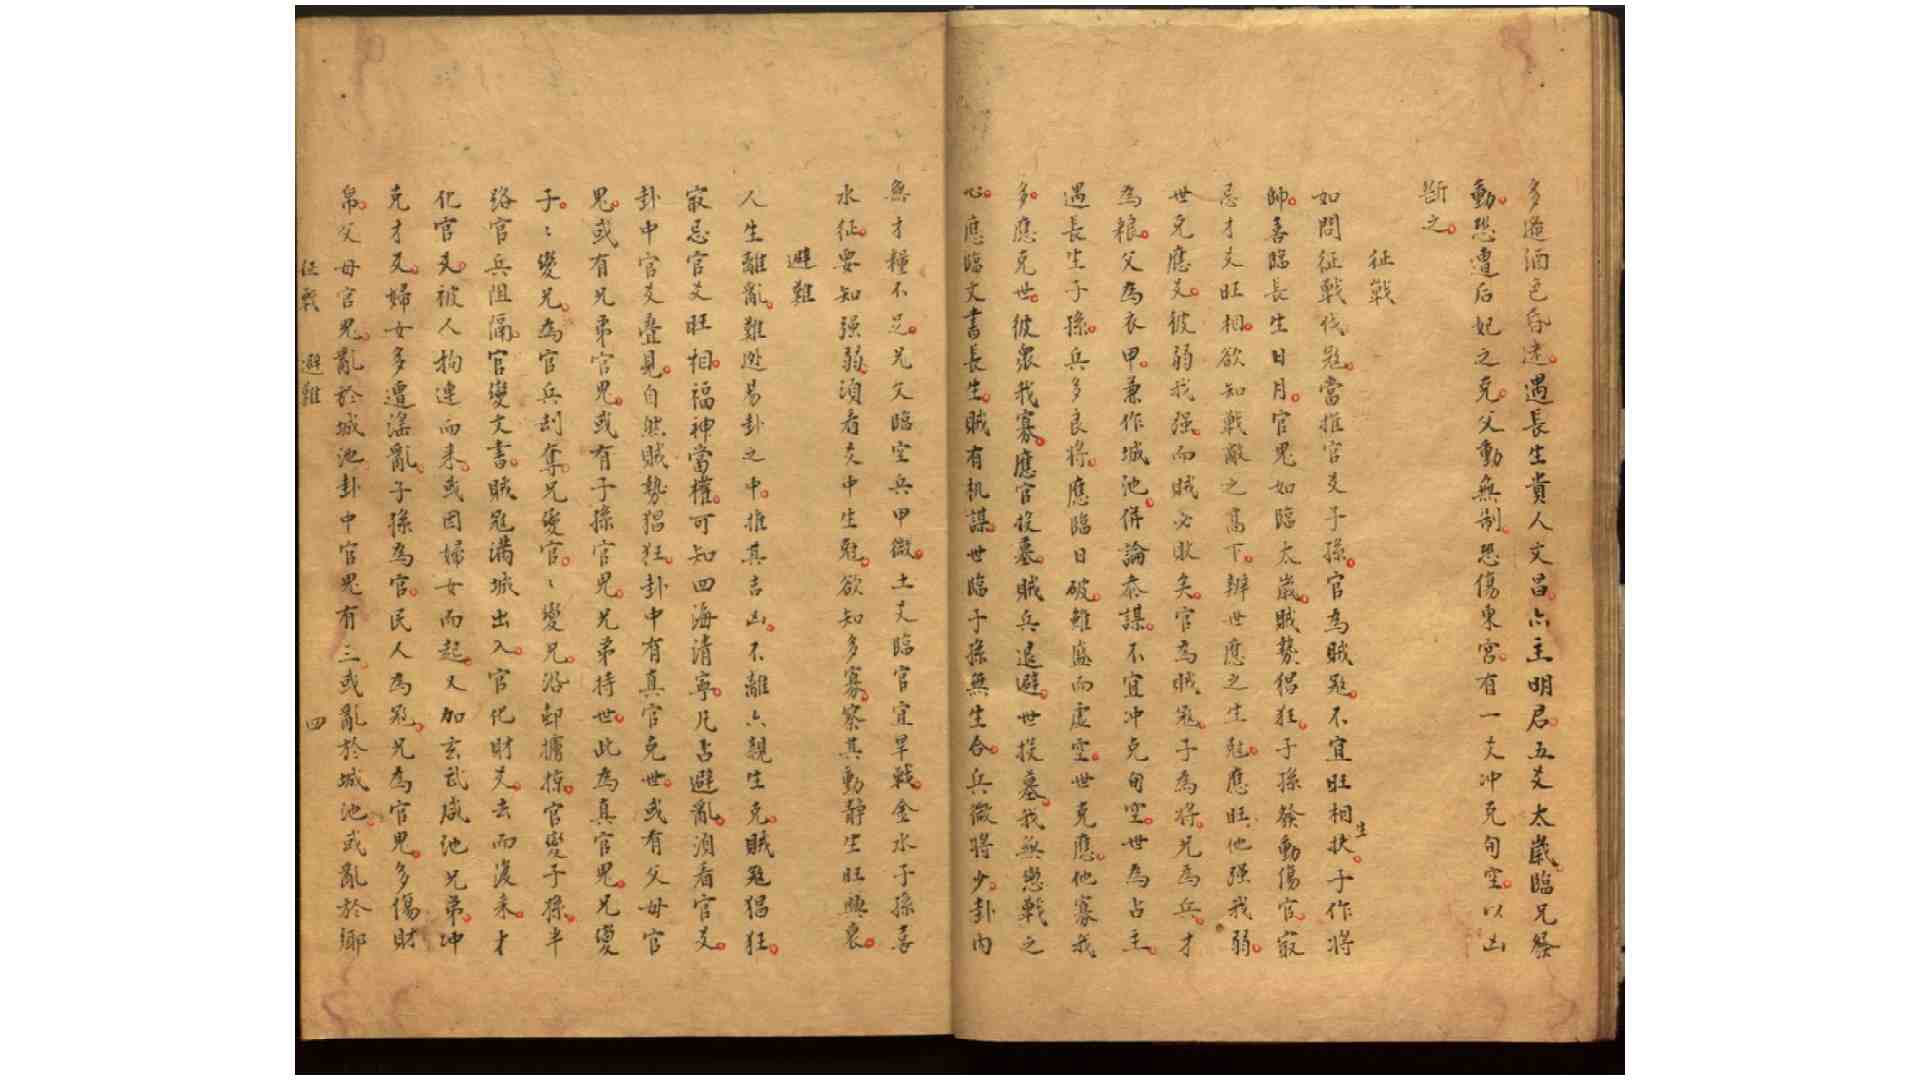 多過酒色昏迷。遇長生貴人文昌。亦主明君。五爻太歲臨兄發
動。恐遭后妃之克。父動無制。恐傷東宮。有一爻冲克旬空。以凶
断之。
征戰
如問征戰伐冦。當推官爻子孫。官為賊冦。不宜旺相生扶。子作將
帥。喜臨長生日月。官鬼如臨太歲。賊勢猖狂。子孫發動傷官。㝡
忌才爻旺相。欲知戰敵之高下。辨世應之生尅。應旺他强我弱。
世克應爻。彼弱我强。而賊必敗矣。官為賊冦。子為將。兄為兵。才
為粮。父為衣甲。兼作城池。併論叅謀。不宜冲克旬空。世為占主。
遇長生子孫。兵多良將。應臨日破。雖盛而虛空。世克應。他寡我
多。應克世。彼衆我寡。應官投墓。賊兵退避。世投墓。我無戀戰之
心。應臨文書長生。賊有机謀。世臨子孫無生合。兵微將少。卦内
無才糧不足。兄父臨空兵甲微。土爻臨官宜旱戰。金水子孫喜
水征。要知强弱。湏看爻中生尅。欲知多寡。察其動靜生旺興衰。
避難
人生離亂。難逃易卦之中。推其吉凶。不離六親生克。賊冦猖狂。
㝡忌官爻旺相。福神當權。可知四海清寧。凡占避亂。湏看官爻。
卦中官爻疊見。自然賊勢猖狂。卦中有真官克世。或有父母官
鬼。或有兄弟官鬼。或有子孫官鬼。兄弟持世。此為真官鬼。兄變
子。子變兄。為官兵刦奪。兄變官。官變兄。沿邨擄掠。官變子孫。半
路官兵阻隔。官變文書。賊冦滿城出入。官化財爻。去而復来。才
化官爻。被人拘連而来。或因婦女而起。又加玄武咸池兄弟。冲
克才爻。婦女多遭滛亂。子孫為官。民人為冦。兄為官鬼。多傷財
帛。父母官鬼。亂於城池。卦中官鬼有三。或亂於城池。或亂於鄉
征戰 避難 四